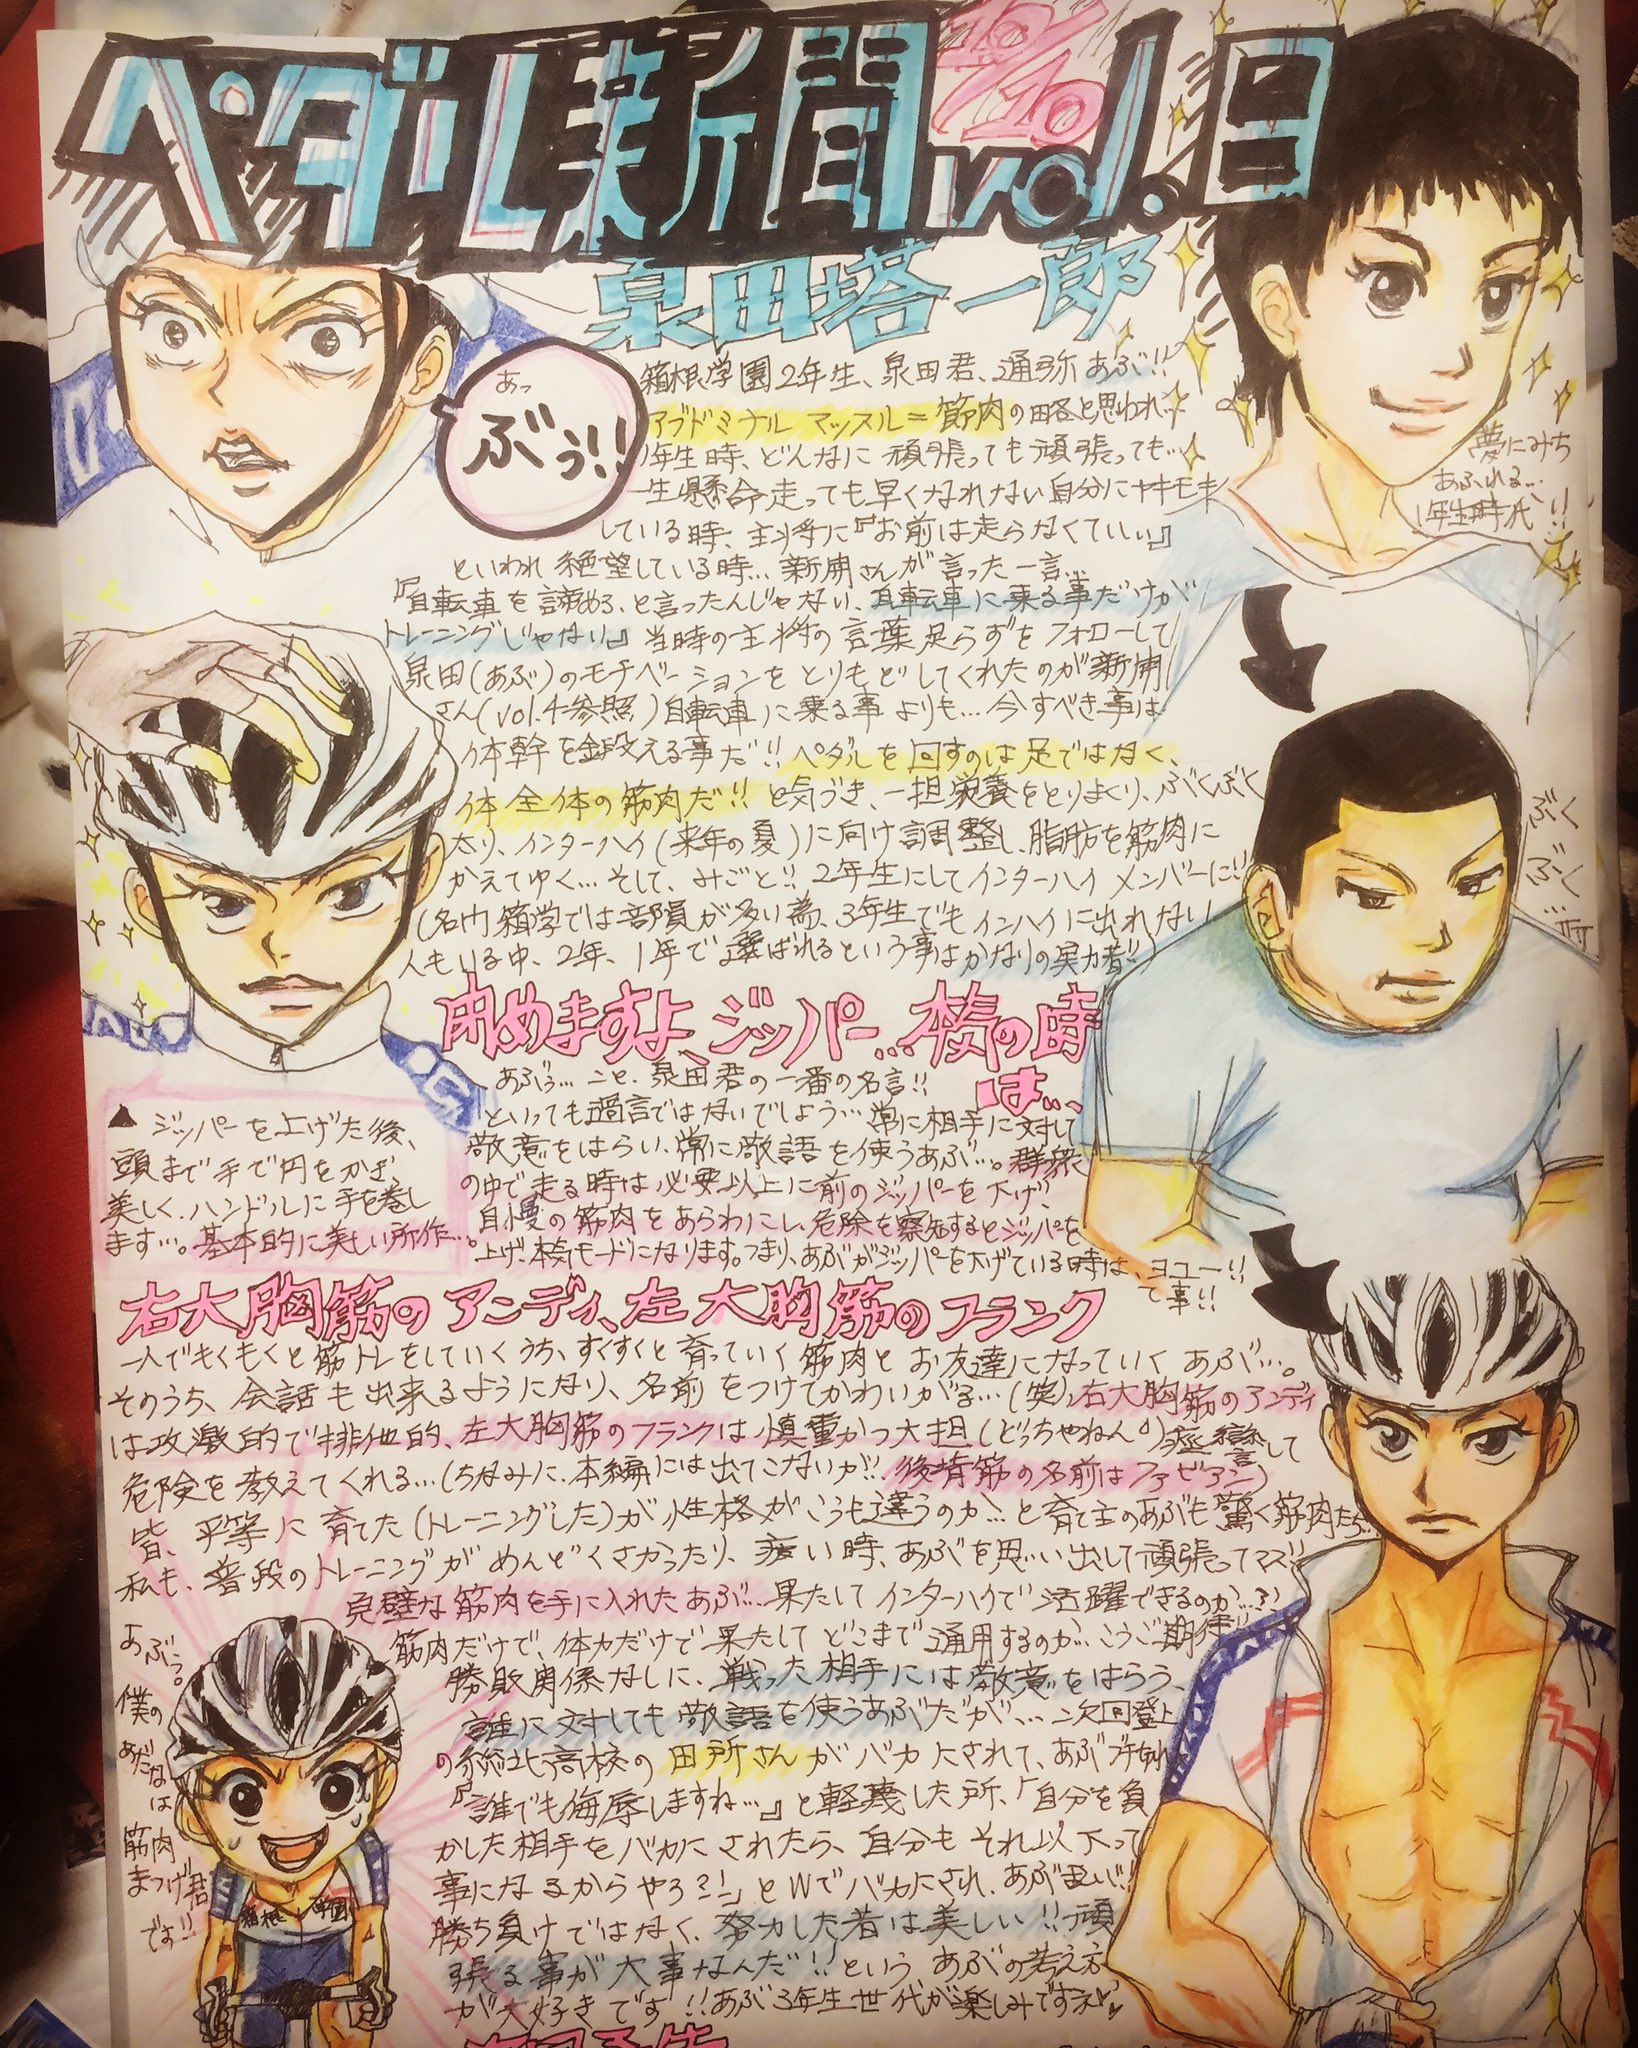 ペダル新聞 vol.8
10/10
泉田塔一郎
あっ
ぶぅ!!
箱根学園2年生、泉田君、通称あぶ!!
アブドミナルマッスル=筋肉の略と思われ…
1年生時、どんなに頑張っても頑張っても…
一生懸命走っても早くなれない自分にヤキモキ
している時、主将に『お前は走らなくていい』
といわれ絶望している時…新開さんが言った一言…
『自転車を諦めろ、と言ったんじゃない、自転車に乗る事だけが
トレーニングじゃない』当時の主将の言葉足らずをフォローして
泉田(あぶ)のモチベーションをとりもどしてくれたのが新開
さん(vol.4参照)自転車に乗る事よりも…今すべき事は
体幹を鍛える事だ!!ペダルを回すのは足ではなく、
体全体の筋肉だ!!と気づき、一担栄養をとりまくり、ぶくぶく
太り、インターハイ(来年の夏)に向け調整し、脂肪を筋肉に
かえてゆく…そして、みごと!!2年生にしてインターハイメンバーに!!
(名門箱学では部員が多い為、3年生でもインハイに出れない
人もいる中、2年、1年で選ばれるという事はかなりの実力者!!)
夢にみち
あふれる…
1年生時代!!
ぶく
ぶく
…!!
閉めますよ、ジッパー…本気の時
は…、
あぶぅ…こと、泉田君の一番の名言!!
といっても過言ではないでしょう…常に相手に対して
敬意をはらい、常に敬語を使うあぶ…。群衆
の中で走る時は必要以上に前のジッパーを下げ、
自慢の筋肉をあらわにし、危険を察知するとジッパーを
上げ、本気モードになります。つまり、あぶがジッパーを下げている時は、ヨユー!!
て事!!
▲ジッパーを上げた後、
頭まで手で円をかき、
美しく、ハンドルに手を巻し
ます…。基本的に美しい所作…。
右大胸筋のアンディ、左大胸筋のフランク
一人でもくもくと筋トレをしていくうち、すくすくと育っていく筋肉とお友達になっていくあぶ…。
そのうち、会話も出来るようになり、名前をつけてかわいがる…(笑)右大胸筋のアンディ
は攻激的で排他的、左大胸筋のフランクは慎重かつ大担(どっちやねん)痙攣して
危険を教えてくれる…(ちなみに、本編には出てこないが!!後背筋の名前はファビアン)
皆、平等に育てた(トレーニングした)が、性格がこうも違うのか…と育て主のあぶも驚く筋肉たち…
私も、普段のトレーニングがめんどくさかったり、疲い時、あぶを思い出して頑張ってマス!!
完璧な筋肉を手に入れたあぶ…果たしてインターハイで活躍できるのか…??
筋肉だけで、体力だけで果たしてどこまで通用するのか…こうご期待!!
勝敗関係なしに、戦った相手には敬意をはらう、
誰に対しても敬語を使うあぶだが…、次回登上
の総北高校の田所さんがバカにされて、あぶブチ切れ
『誰でも侮辱しますね…』と軽蔑した所、「自分を負
かした相手をバカにされたら、自分もそれ以下って
事になるからやろ?!」とWでバカにされ、あぶ思い!!
勝ち負けではなく、努力した者は美しい!!頑
張る事が大事なんだ!!というあぶの考え方
が大好きです!!あぶ3年生世代が楽しみですネ♡
よあぶっ。
僕の
あだなは
筋肉
まつげ君
です!!
箱根学園